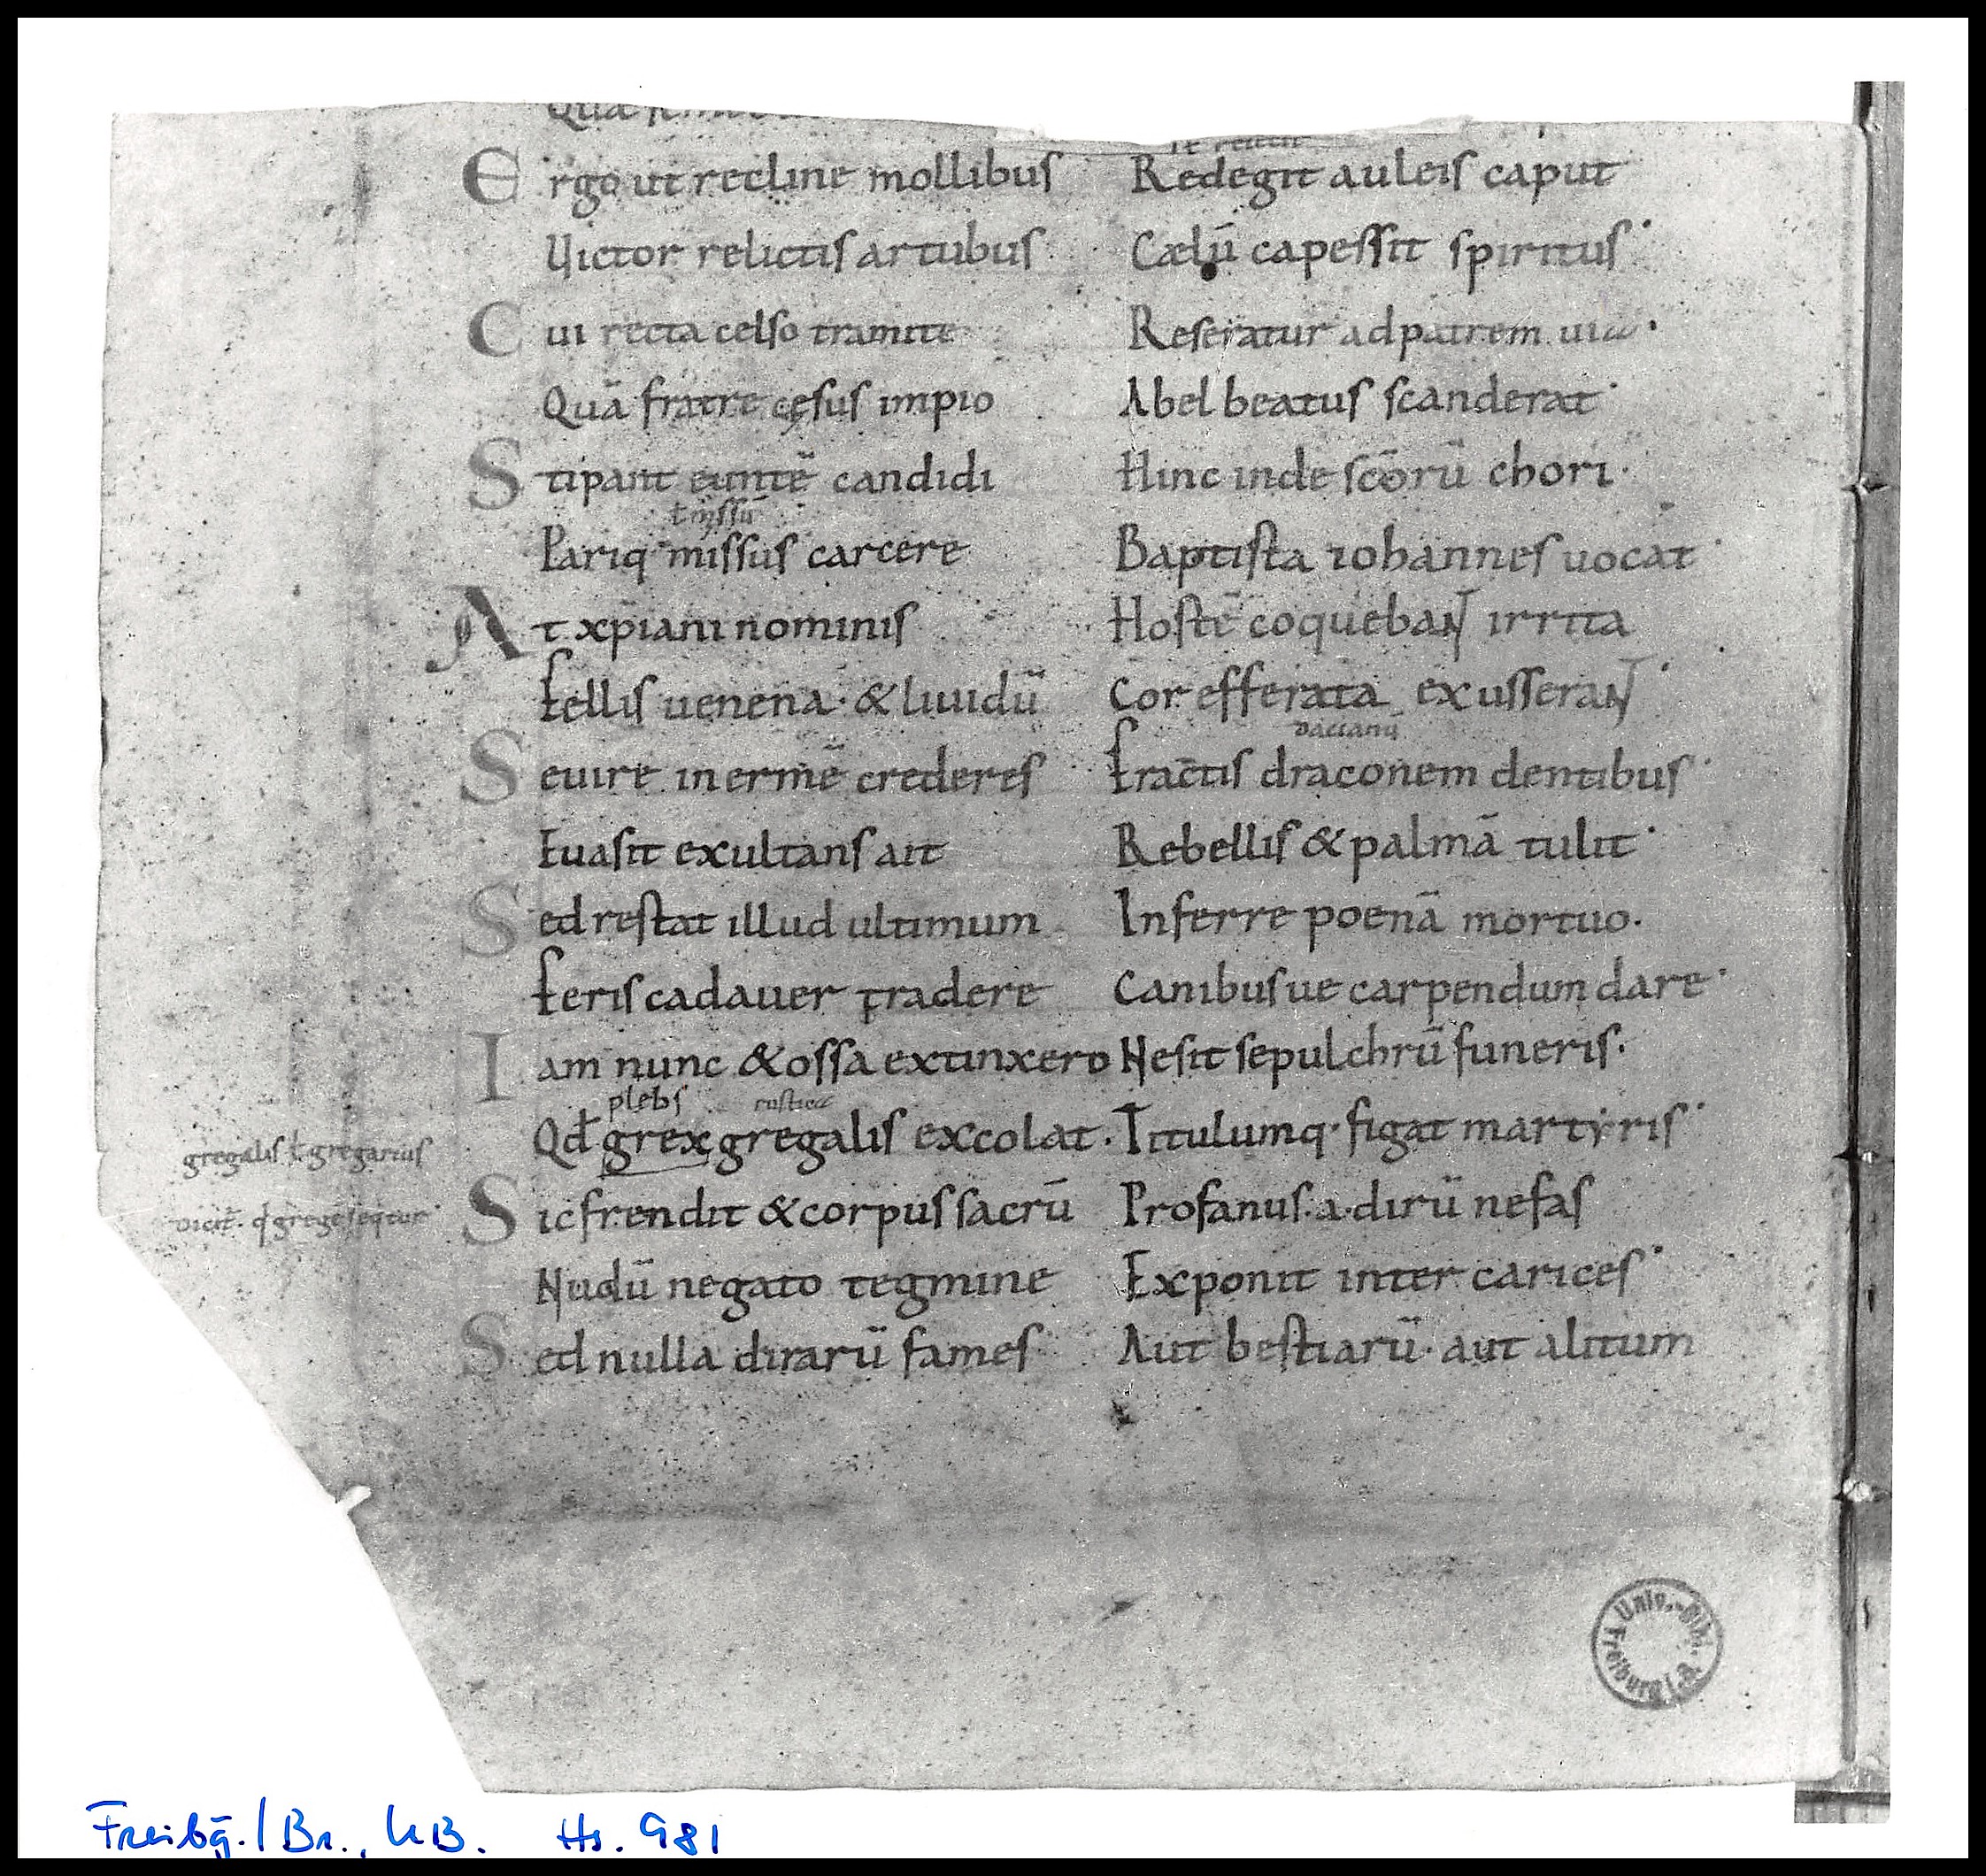 Qua
Ergo ut recline mollibus Redegit auleis caput
Victor relictis artubus Cælū capessit spiritus
Cui recta celso tramite Reseratur ad patrem uia
Quā fratre cęsus impio Abel beatus scanderat
Stipant euntē candidi Hinc inde scōrū chori
ł missū
Pariq· missus carcere Baptista iohannes uocat
At xp̄iani nominis Hostē coquebant irrita
Fellis uenena· & liuidū Cor efferata exusserant
dacianū
Seuire inermē crederes Fractis draconem dentibus
Euasit exultans ait Rebellis & palmā tulit
Sed restat illud ultimum Inferre poenā mortuo.
Feris cadauer tradere Canibusue carpendum dare
Iam nunc & ossa extinxero Ne sit sepulchrū funeris.
plebs rustica
Qđ grex gregalis excolat. Titulumq· figat martyris
gregalis ł gregarius
Sic frendit & corpus sacrū Profanus· a· dirū nefas
dicit̄· q̄ gregē seq̄tur
Nudū negato tegmine Exponit inter carices
Sed nulla dirarū fames Aut bestiarū· aut alitum
Univ.-Bibl. Freiburg i. B.
Freibg./Br., UB. Hs. 981